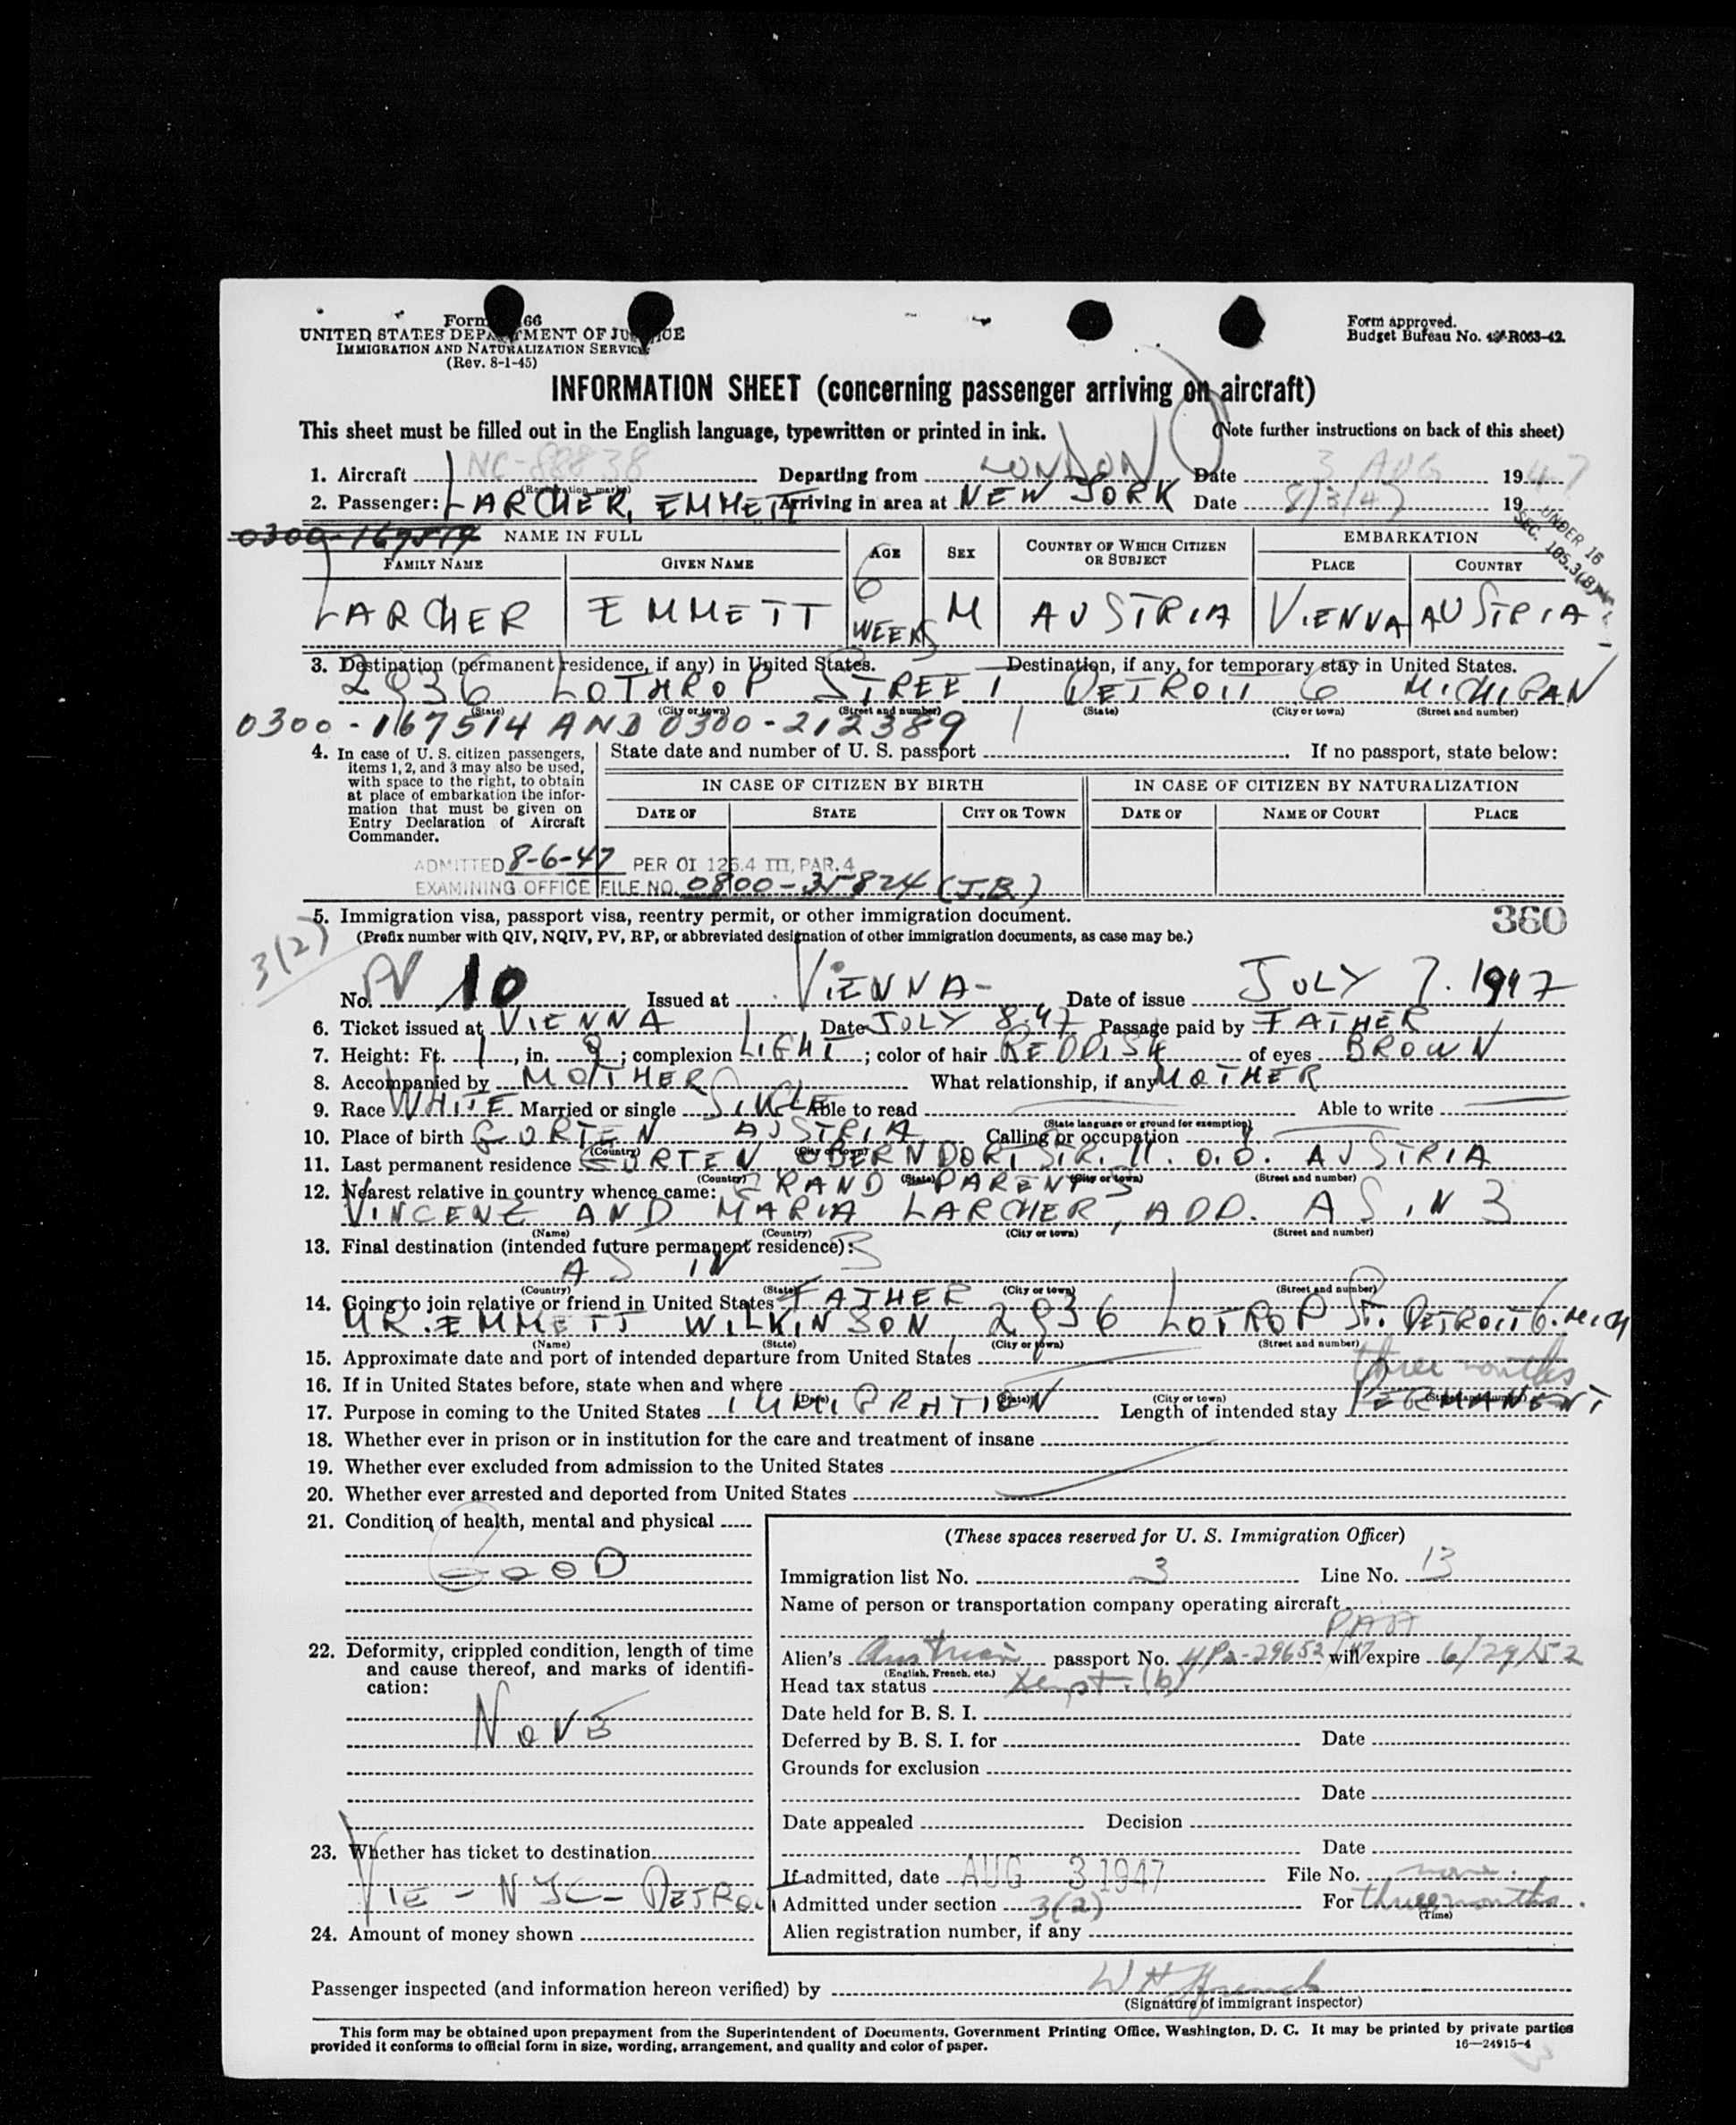 Form 66
UNITED STATES DEPARTMENT OF JUSTICE
IMMIGRATION AND NATURALIZATION SERVICE
(Rev. 8-1-45)
Form approved.
Budget Bureau No. 43-R063-42.
INFORMATION SHEET (concerning passenger arriving on aircraft)
This sheet must be filled out in the English language, typewritten or printed in ink. (Note further instructions on back of this sheet)
1. Aircraft NC-88838 Departing from LONDON Date 3 AUG 1947
(Registration marks)
2. Passenger: LARCHER, EMMETT Arriving in area at NEW YORK Date 8/3/47 19
UNDER 16
SEC. 165.3(B)
0300-167514 NAME IN FULL AGE SEX COUNTRY OF WHICH CITIZEN OR SUBJECT EMBARKATION
FAMILY NAME GIVEN NAME PLACE COUNTRY
LARCHER EMMETT 6 WEEKS M AUSTRIA VIENNA AUSTRIA
3. Destination (permanent residence, if any) in United States. Destination, if any, for temporary stay in United States.
2936 LOTHROP STREET DETROIT 6 MICHIGAN
(State) (City or town) (Street and number) (State) (City or town) (Street and number)
0300-167514 AND 0300-212389
4. In case of U. S. citizen passengers, items 1, 2, and 3 may also be used, with space to the right, to obtain at place of embarkation the information that must be given on Entry Declaration of Aircraft Commander.
State date and number of U. S. passport If no passport, state below:
IN CASE OF CITIZEN BY BIRTH IN CASE OF CITIZEN BY NATURALIZATION
DATE OF STATE CITY OR TOWN DATE OF NAME OF COURT PLACE
ADMITTED 8-6-47 PER OI 126.4 III, PAR. 4
EXAMINING OFFICE FILE NO. 0800-35824 (J.B.)
5. Immigration visa, passport visa, reentry permit, or other immigration document. 360
(Prefix number with QIV, NQIV, PV, RP, or abbreviated designation of other immigration documents, as case may be.)
3(2)
No. PV 10 Issued at VIENNA- Date of issue JULY 7. 1947
6. Ticket issued at VIENNA Date JULY 8.47 Passage paid by FATHER
7. Height: Ft. 1, in. 9; complexion LIGHT; color of hair REDDISH of eyes BROWN
8. Accompanied by MOTHER What relationship, if any MOTHER
9. Race WHITE Married or single SINGLE Able to read Able to write
(State language or ground for exemption)
10. Place of birth GURTEN AUSTRIA Calling or occupation
(Country) (City or town)
11. Last permanent residence GURTEN, OBERNDORF STR. 11. O.D. AUSTRIA
(Country) (State) (City or town) (Street and number)
12. Nearest relative in country whence came: GRAND-PARENTS
VINCENZ AND MARIA LARCHER, ADD. AS IN 3
(Name) (Country) (City or town) (Street and number)
13. Final destination (intended future permanent residence):
AS IN 3
(Country) (State) (City or town) (Street and number)
14. Going to join relative or friend in United States FATHER
MR. EMMETT WILKINSON, 2936 LOTROP ST. DETROIT 6. MICH
(Name) (State) (City or town) (Street and number)
15. Approximate date and port of intended departure from United States
16. If in United States before, state when and where three months
(Date) (State) (City or town) (Street and number)
17. Purpose in coming to the United States IMMIGRATION Length of intended stay PERMANENT
18. Whether ever in prison or in institution for the care and treatment of insane
19. Whether ever excluded from admission to the United States
20. Whether ever arrested and deported from United States
21. Condition of health, mental and physical
GOOD
22. Deformity, crippled condition, length of time and cause thereof, and marks of identification:
NONE
23. Whether has ticket to destination
VIE - NYC - DETROI
24. Amount of money shown
(These spaces reserved for U. S. Immigration Officer)
Immigration list No. 3 Line No. 13
Name of person or transportation company operating aircraft
PAA
Alien's Austrian passport No. will expire 6/29/52
(English, French, etc.)
Head tax status Exempt. (b)
Date held for B. S. I.
Deferred by B. S. I. for Date
Grounds for exclusion
Date
Date appealed Decision
Date
If admitted, date AUG 3 1947 File No. none.
Admitted under section 3(2) For three months.
(Time)
Alien registration number, if any
Passenger inspected (and information hereon verified) by W H French
(Signature of immigrant inspector)
This form may be obtained upon prepayment from the Superintendent of Documents, Government Printing Office, Washington, D. C. It may be printed by private parties
provided it conforms to official form in size, wording, arrangement, and quality and color of paper. 16—24915-4